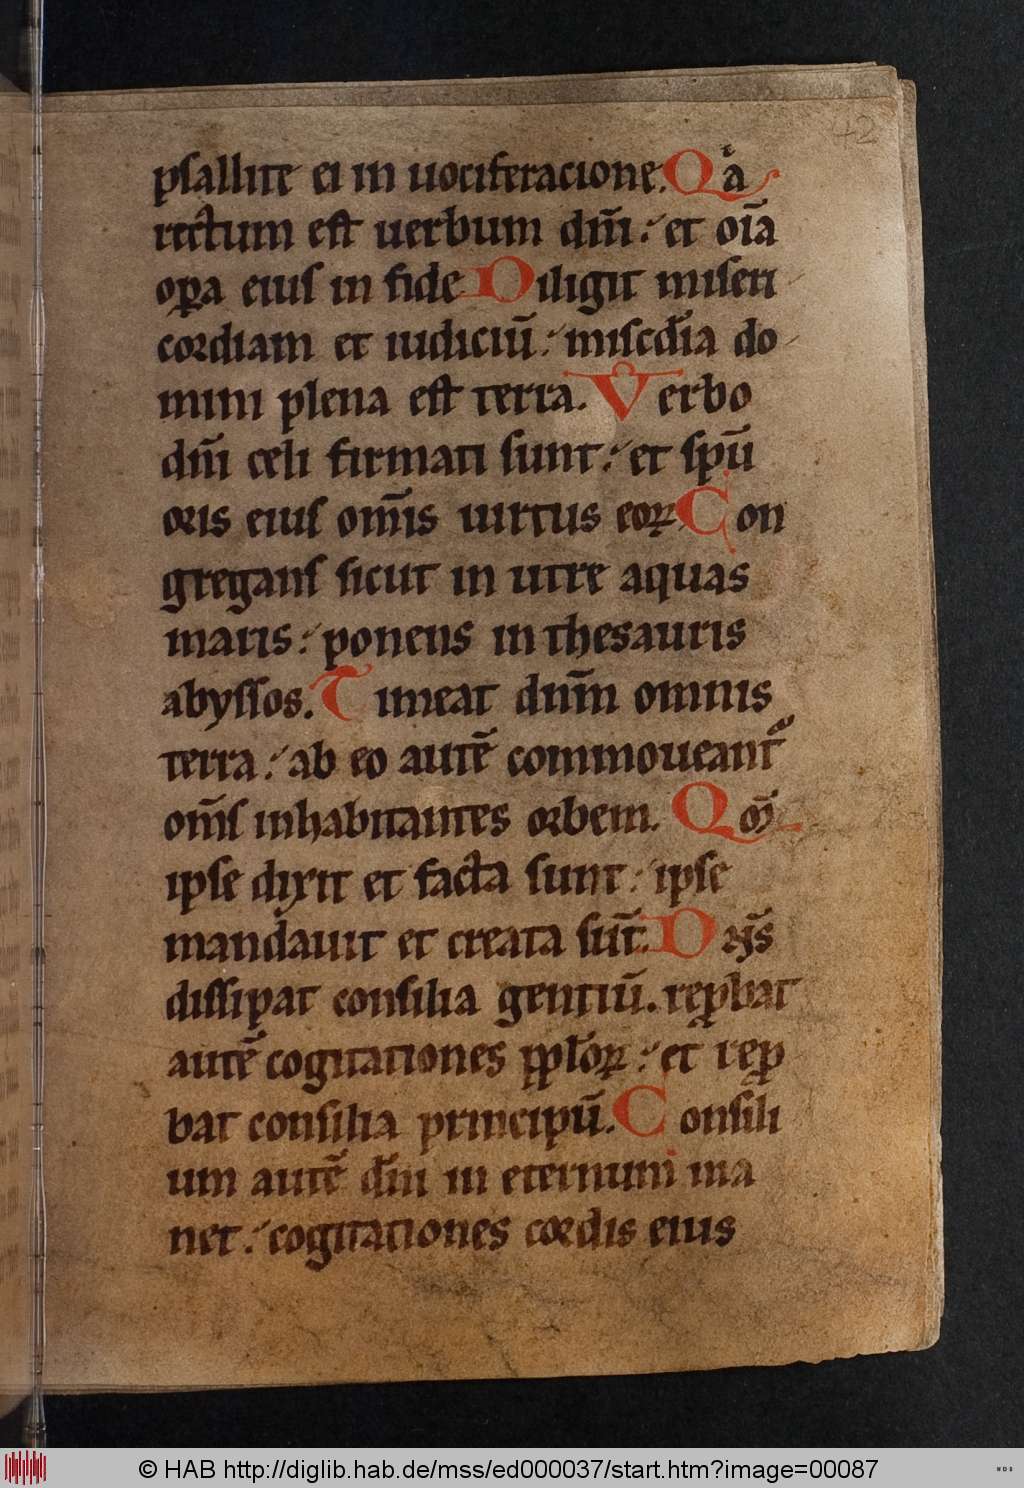 42
psallite ei in uociferacione. Qͥa
rectum est uerbum dn̄i: et oīa
oꝑa eius in fide Diligit miseri
cordiam et iudiciū: misc̄dia do
mini plena est terra. Verbo
dn̄i celi firmati sunt: et sp̄u
oris eius om̄is uirtus eoꝝ Con
gregans sicut in utre aquas
maris: ponens in thesauris
abyssos. Timeat dn̄m omnis
terra: ab eo autē commoueant᷑
om̄s inhabitantes orbem. Qm̄
ipse dixit et facta sunt: ipse
mandauit et creata sūt. Dn̄s
dissipat consilia gentiū. reꝓbat
autē cogitationes ppl̄oꝝ: et reꝓ
bat consilia principū. Consili
um autē dn̄i in eternum ma
net: cogitationes cordis eius
© HAB http://diglib.hab.de/mss/ed000037/start.htm?image=00087